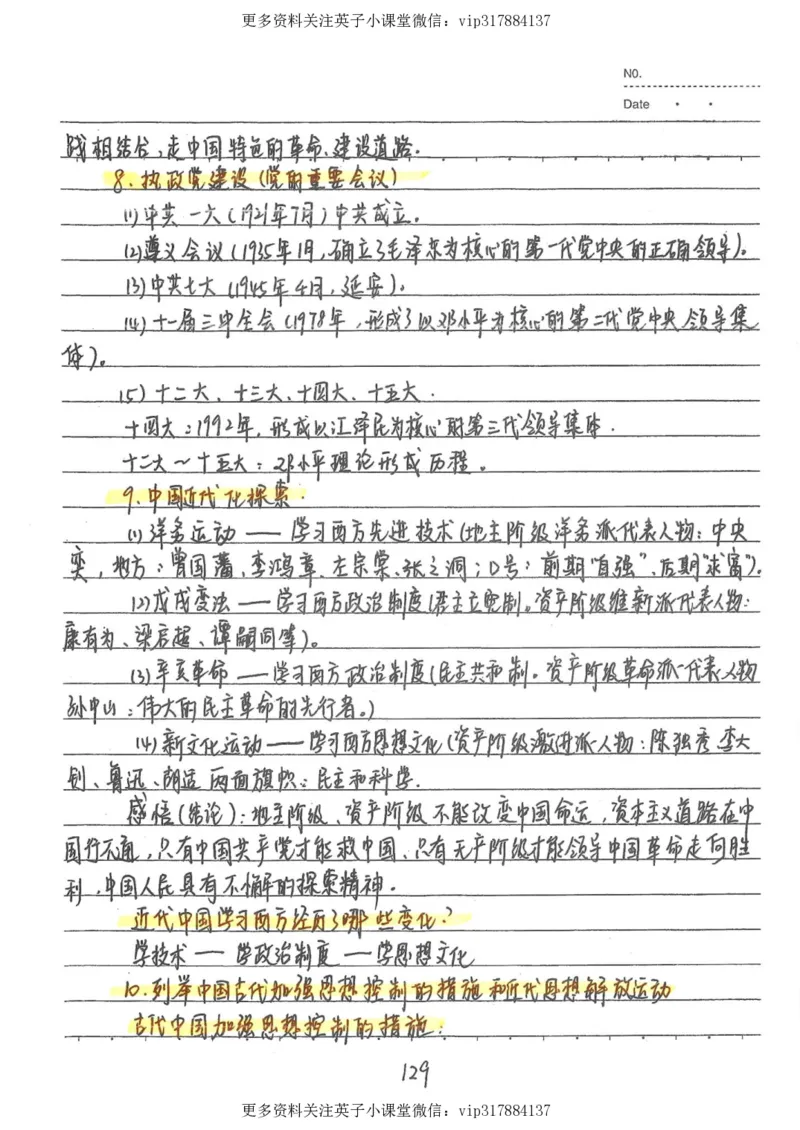 更多资料关注英子小课堂微信：vip317884137
NO.
Date
践相结合，走中国特色的革命、建设道路.
8. 执政党建设(党的重要会议)
(1)中共一大(1921年7月)中共成立.
(2)遵义会议(1935年1月,确立了毛泽东为核心的第一代党中央的正确领导)。
(3)中共七大(1945年4月,延安)。
(4)十一届三中全会(1978年,形成了以邓小平为核心的第二代党中央领导集
体)。
(5)十二大、十三大、十四大、十五大.
十四大:1992年,形成以江泽民为核心的第三代领导集体.
十二大~十五大:邓小平理论形成历程。
9.中国近代化探索.
(1)洋务运动——学习西方先进技术(地主阶级洋务派代表人物:中央
奕,地方:曾国藩、李鸿章、左宗棠、张之洞;口号:前期"自强"、后期"求富")。
(2)戊戌变法——学习西方政治制度(君主立宪制。资产阶级维新派代表人物:
康有为、梁启超、谭嗣同等)。
(3)辛亥革命——学习西方政治制度(民主共和制。资产阶级革命派-代表人物
孙中山:伟大的民主革命的先行者。)
(4)新文化运动——学习西方思想文化(资产阶级激进派人物:陈独秀、李大
钊、鲁迅、胡适 两面旗帜:民主和科学.
感悟(结论):地主阶级、资产阶级不能改变中国命运,资本主义道路在中
国行不通,只有中国共产党才能救中国、只有无产阶级才能领导中国革命走向胜
利,中国人民具有不懈的探索精神.
近代中国学习西方经历了哪些变化?
学技术——学政治制度——学思想文化
10.列举中国古代加强思想控制的措施和近代思想解放运动
古代中国加强思想控制的措施:
129
更多资料关注英子小课堂微信：vip317884137